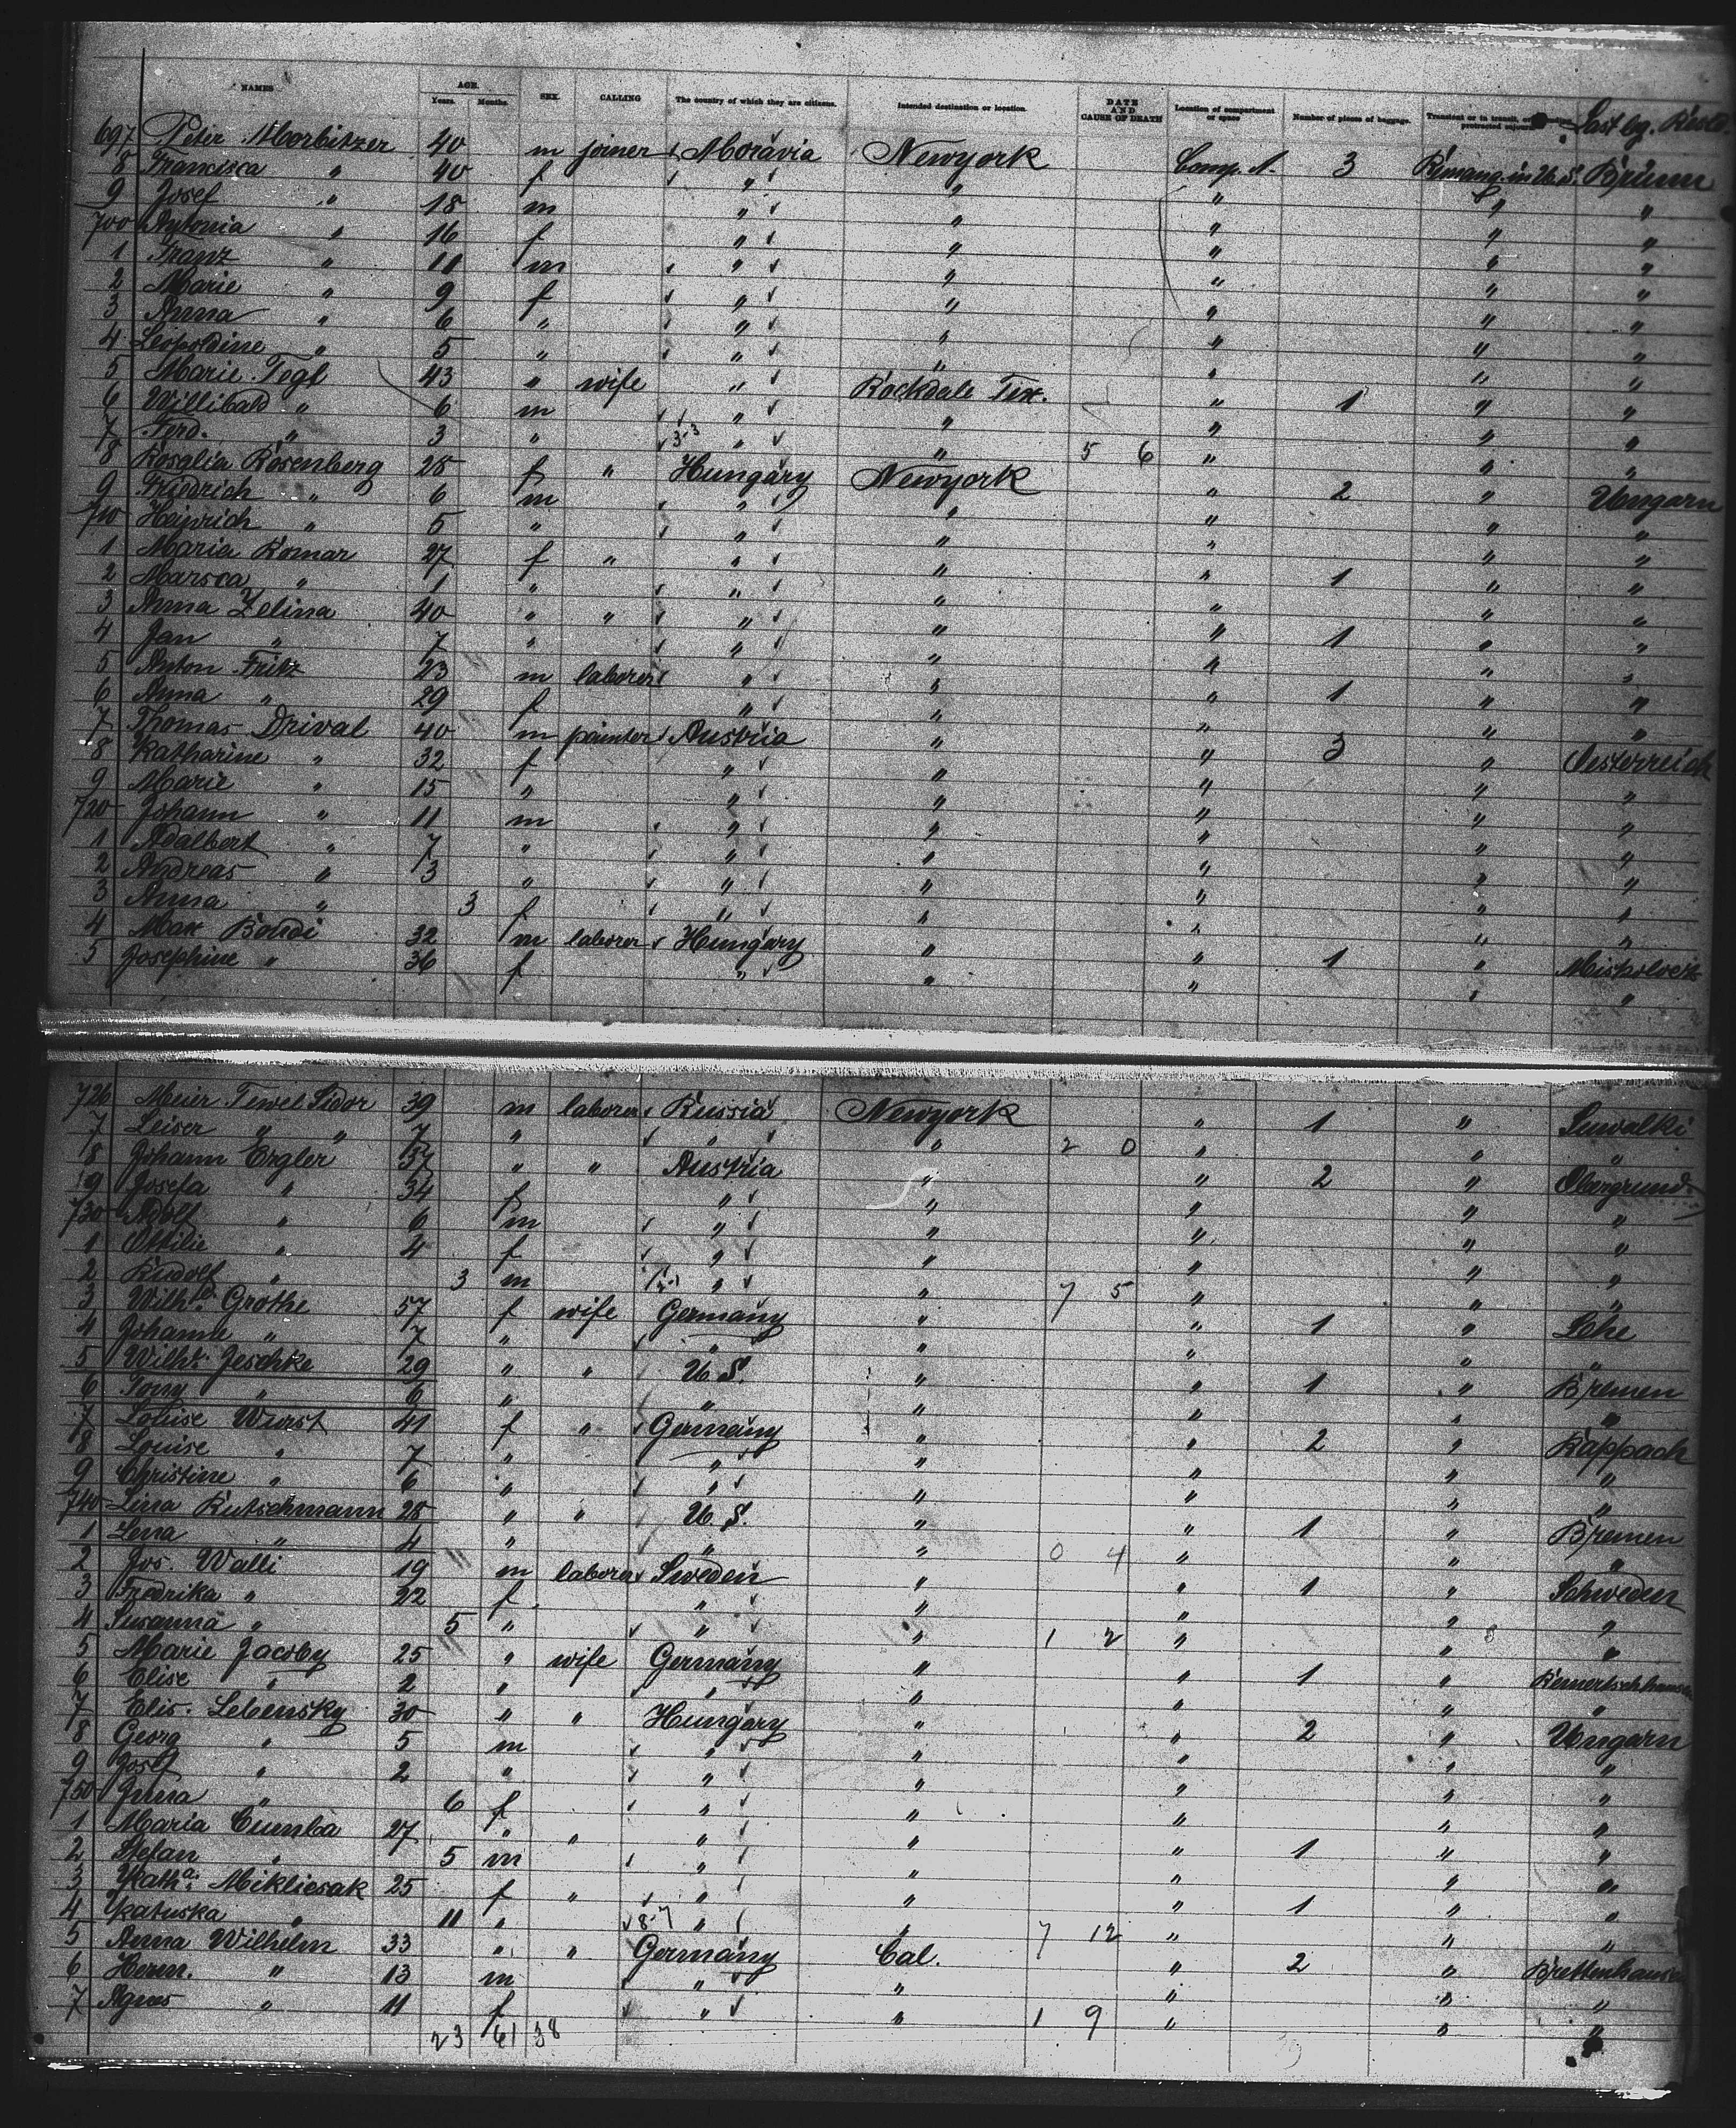 NAMES AGE. Years. Months. SEX. CALLING The country of which they are citizens. Intended destination or location. DATE AND CAUSE OF DEATH Location of compartment or space Number of pieces of baggage. Transient or in transit, or protracted sojourn. Last leg. Resid
697 Peter Morbitzer 40 m joiner Moravia Newyork Comp. 1. 3 Remang. in U.S. Brünn
8 Francisca " 40 f " " " " "
9 Josef " 18 m " " " " "
700 Antonia " 16 f " " " " "
1 Franz " 11 m " " " " "
2 Marie " 9 f " " " " "
3 Anna " 6 " " " " " "
4 Leopoldine " 5 " " " " " "
5 Marie Togl 43 " wife " Rockdale Tex. " 1 " "
6 Willibald " 6 m " " " " "
7 Ferd. " 3 " " " 5 6 " " "
8 Rosalia Rosenberg 28 f " Hungary Newyork " 2 " Ungarn
9 Friedrich " 6 m " " " " "
710 Heinrich " 5 " " " " " "
1 Maria Romar 27 f " " " " 1 " "
2 Marsca " 1 " " " " " "
3 Anna Zelina 40 " " " " " 1 " "
4 Jan " 7 " " " " " "
5 Anton Fritz 23 m laborer " " " 1 " "
6 Anna " 29 f " " " " "
7 Thomas Drival 40 m painter Austria " " 3 " Oesterreich
8 Katharine " 32 f " " " " "
9 Marie " 15 " " " " " "
720 Johann " 11 m " " " " "
1 Adalbert " 7 " " " " " "
2 Andreas " 3 " " " " " "
3 Anna " 3 f " " " " "
4 Max Bondi 32 m laborer Hungary " " 1 " Miskolcz
5 Josephine " 36 f " " " " "
726 Meier Tewel Sidor 39 m laborer Russia Newyork " 1 " Suwalki
7 Leiser " " 7 " " " 2 0 " " "
8 Johann Ergler 37 " " Austria " " 2 " Obergrund
9 Josefa " 34 f " " " " "
730 Adolf " 6 m " " " " "
1 Ottilie " 4 f " " " " "
2 Rudolf " 3 m " " 7 5 " " "
3 Wilhe. Grothe 57 f wife Germany " " 1 " Lehe
4 Johanne " 7 " " " " " "
5 Wilhe. Jeschke 29 " " U.S. " " 1 " Bremen
6 Tony " 6 " " " " " "
7 Louise Wurst 41 f " Germany " " 2 " Rappach
8 Louise " 7 " " " " " "
9 Christine " 6 " " " " " "
740 Lina Rutschmann 28 " " U.S. " " 1 " Bremen
1 Lena " 4 " " " 0 4 " " "
2 Jos. Walli 19 m laborer Sweden " " 1 " Schweden
3 Fredrika " 22 f " " " " "
4 Susanna " 5 " " " 1 2 " " "
5 Marie Jacoby 25 " wife Germany " " 1 "
6 Elise " 2 " " " " " "
7 Elis. Lebensky 30 " " Hungary " " 2 " Ungarn
8 Georg " 5 m " " " " "
9 Josef " 2 " " " " " "
750 Anna " 6 f " " " " "
1 Maria Cumba 27 " " " " " 1 " "
2 Stefan " 5 m " " " " "
3 Katha. Mikliesak 25 f " " " " 1 " "
4 Katuska " 11 " " " 7 12 " " "
5 Anna Wilhelm 33 " " Germany Cal. " 2 "
6 Herm. " 13 m " " " " "
7 Agnes " 11 f " " 1 9 " " "
23 61 38